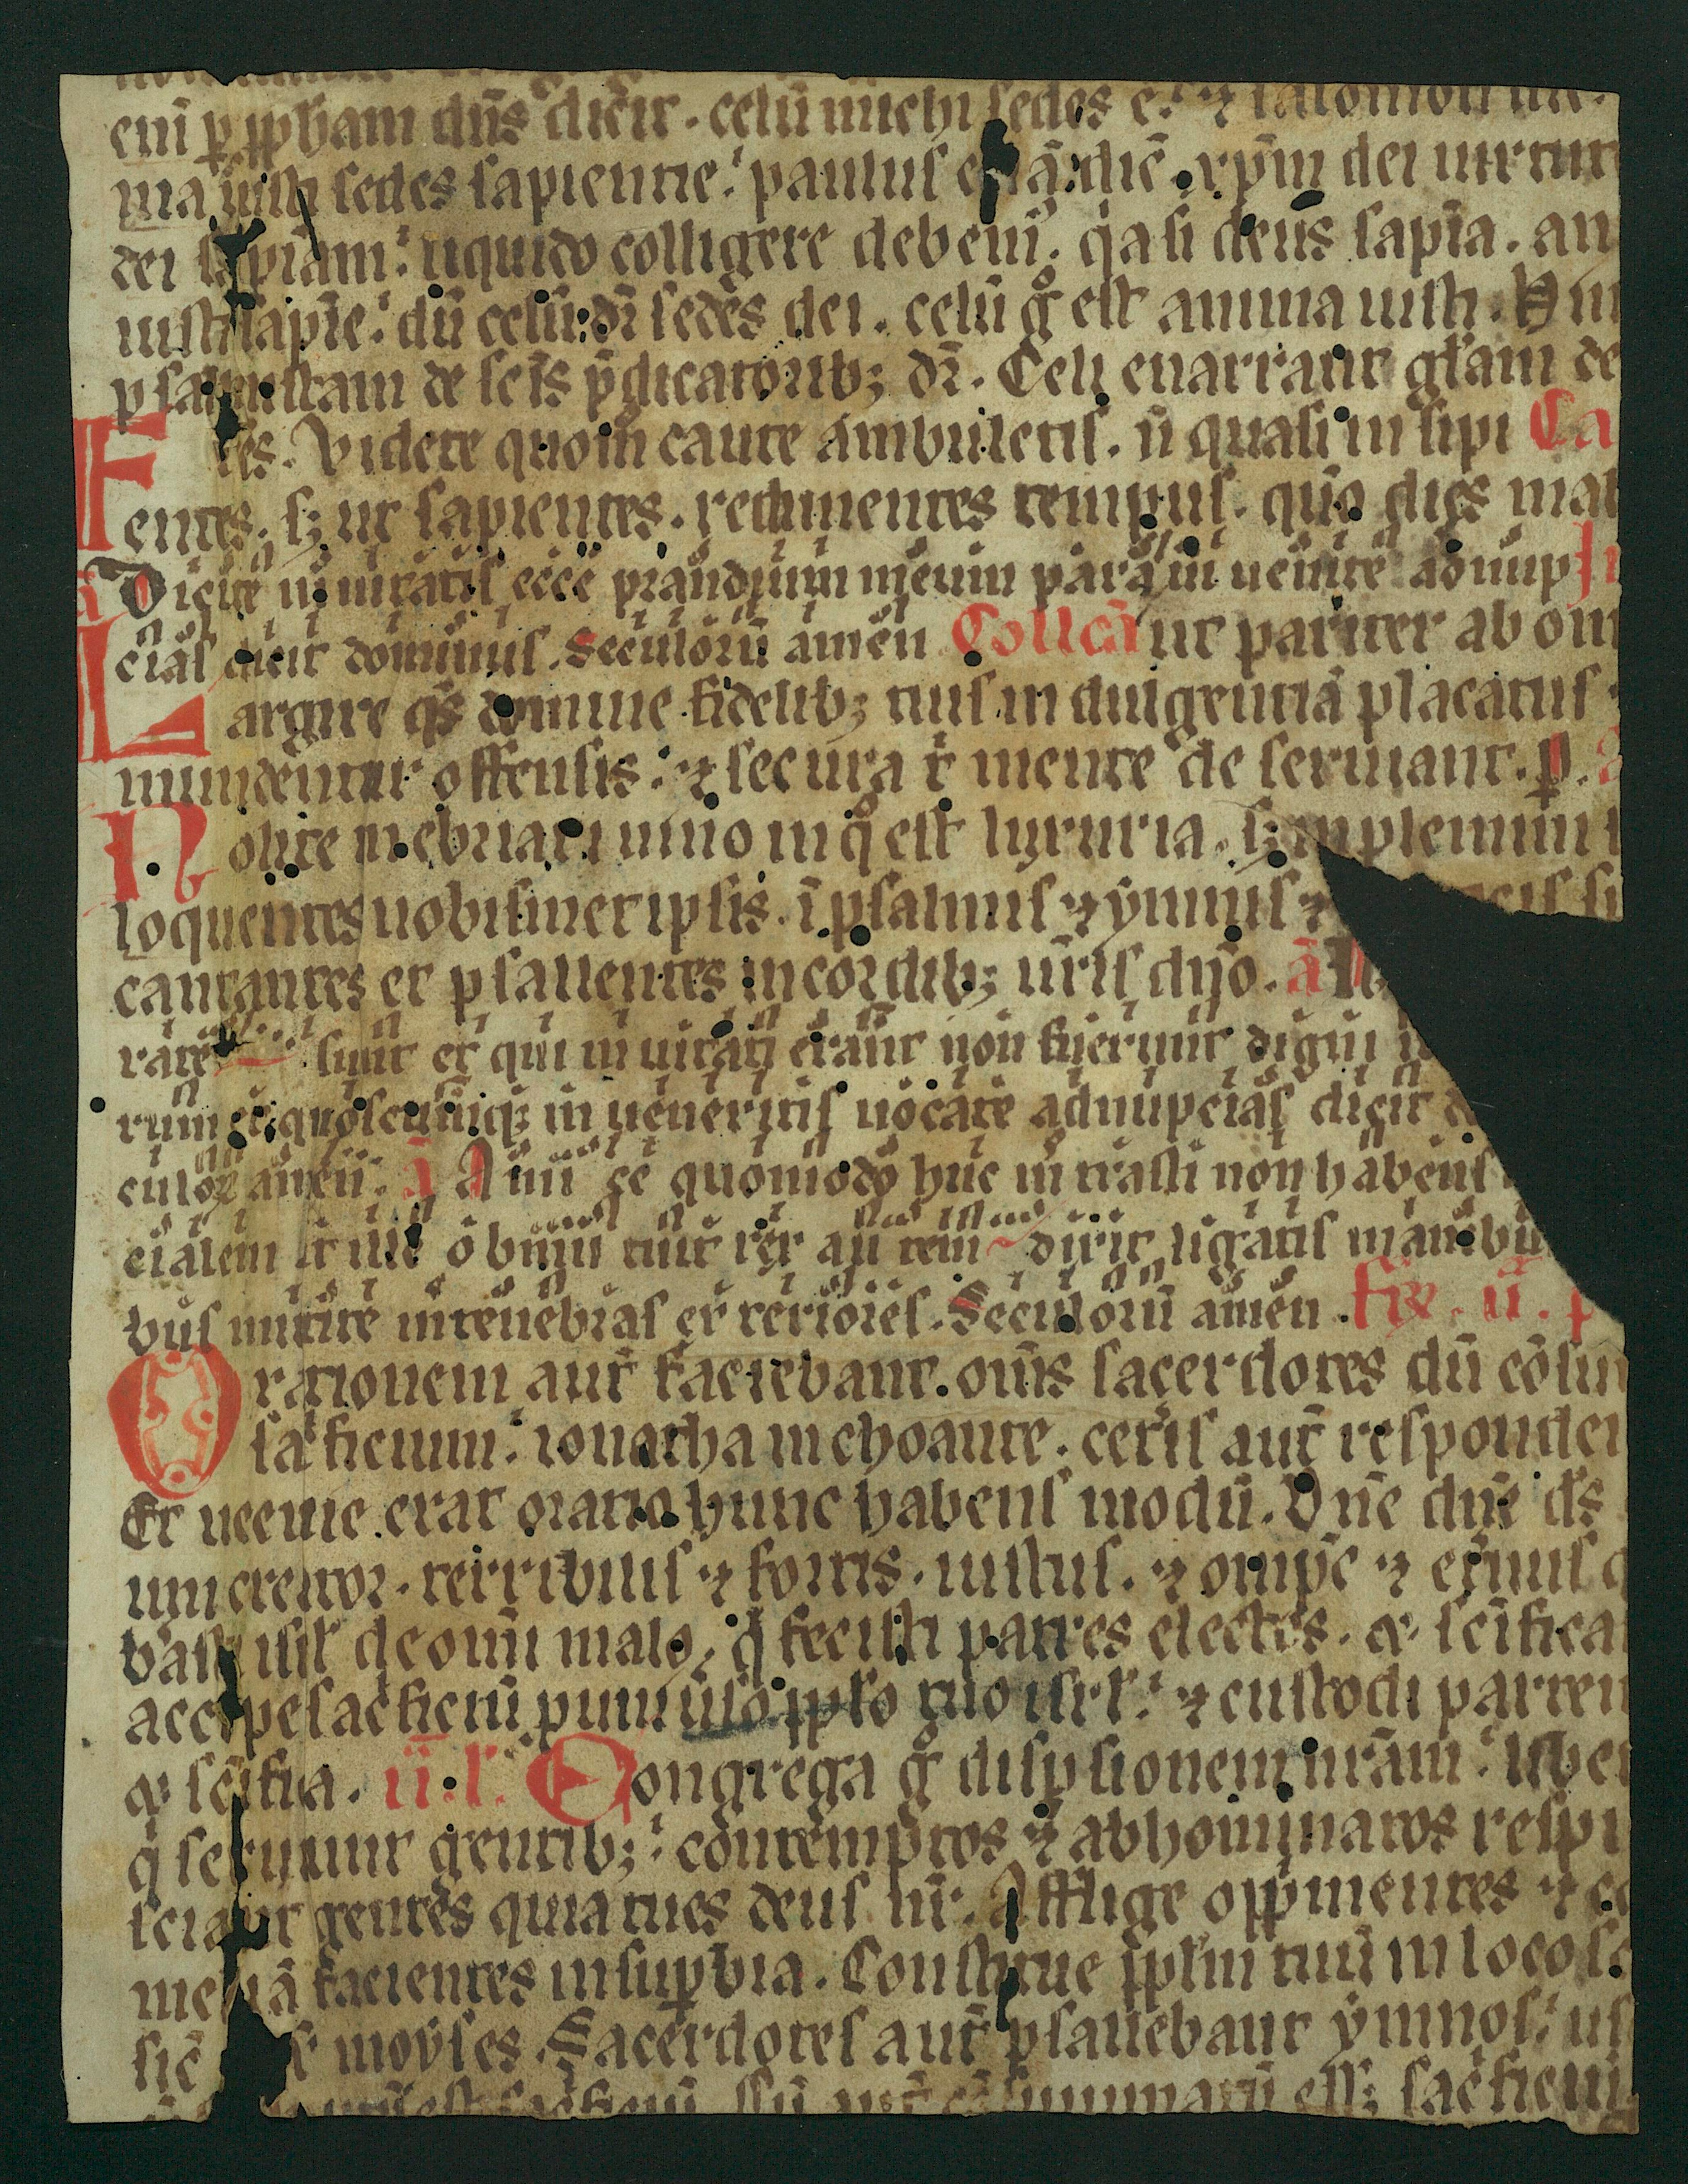 enī ꝑ ꝓph̄am dn̄s dicit . celū michi sedes ē . ⁊ salomon
ma iusti sedes sapientie . paulus dic̄ . xp̄m dei uirtut
dei sapiam . liquido colligere debem᷒ . q̇a si deus sapīa . an
iusti sapīe . dū celū dr̄ sedes dei . celū gͦ est anima iusti . Hin
psalmistam de sc̄is p̄dicatorib; dr̄ . Celi enarrant gl̄am de
Fr̄es . Videte quom̄ caute ambuletis . n̄ quasi insipi Ca
entes . s; ut sapientes . redimentes tempus . qūo dies mal
ā Dicite inuitatis ecce prandium meum paraui uenite ad nup In
cias dicit dominus . Seculorū amen Collcā ut pariter ab om
Largire q̄s domine fidelib; tuis indulgentiā placatus
mundentur offensis . ⁊ secura t̄ mente deseruiant . ꝑ .
Nolite inebriari uino in qͦ est luxuria . s; implemini
loquentes uobismetipsis . ī psalmis ⁊ ymnis ⁊
cantantes et psallentes in cordib; ur̄is dn̄o . ā
rate sunt et qui inuitati erant non fuerunt digni
rum et quoscumq; inueneritis uocate ad nupcias dicit
culoꝝ amen . ā Amice quomodo huc intrasti non habens
cialem at ille obmutuit rex autem dixit ligatis manibus
bus mittite in tenebras exteriores . Seculorū amen . Fr̄ . ii .
Orationem aut̄ faciebant . om̄s sacerdotes dū cōsum
sac̄ficium . ionatha inchoante . cet̄is aut̄ responden
Et neemie erat oratio hunc habens modū . Dn̄e dn̄e d̄s
um creator . terribilis ⁊ fortis . iustus . ⁊ omīpc̄ ⁊ et̄nus
b̓as isr̄l de om̄i malo . q̇ fecisti patres electos . & sc̄ifica
accipe sac̄ficiū ꝓ uniu̓so ꝓplo tuo isrl̓ . ⁊ custodi partem
& sc̄ifica . ii . l̓ . Congrega gͦ disꝑsionem nr̄am . liber
q̇ seruiunt gentib; . contemptos ⁊ abhominatos respi
sciant gentes quia tu es deus nr̄ . Afflige opp̄mentes ⁊ co
meliā facientes in suꝑbia . Constitue ꝓplm̄ tuū in loco sc̄
sic̄ moyses . Sacerdotes aut̄ psallebant ymnos . us
sac̄ficiū